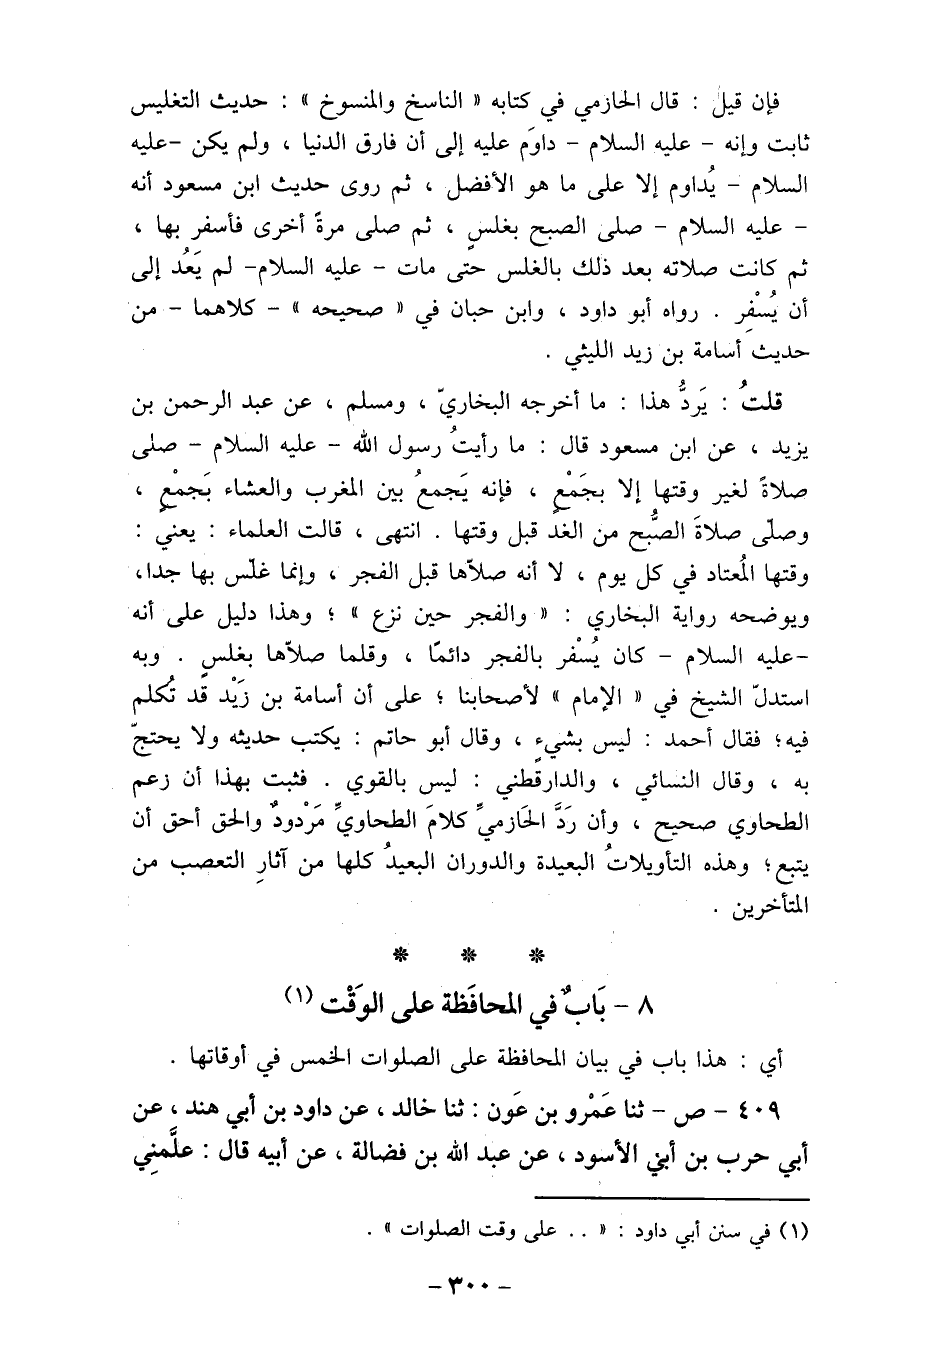 فإن قيل : قال الحازمي في كتابه « الناسخ والمنسوخ » : حديث التغليس
ثابت وإنه - عليه السلام - داوَم عليه إلى أن فارق الدنيا ، ولم يكن -عليه
السلام - يُداوم إلا على ما هو الأفضل ، ثم روى حديث ابن مسعود أنه
- عليه السلام - صلى الصبح بغلسٍ ، ثم صلى مرةً أخرى فأسفر بها ،
ثم كانت صلاته بعد ذلك بالغلس حتى مات - عليه السلام- لم يَعُد إلى
أن يُسْفِر . رواه أبو داود ، وابن حبان في « صحيحه » - كلاهما - من
حديث أسامة بن زيد الليثي .
قلتُ : يَردُّ هذا : ما أخرجه البخاريّ ، ومسلم ، عن عبد الرحمن بن
يزيد ، عن ابن مسعود قال : ما رأيتُ رسول الله - عليه السلام - صلى
صلاةً لغير وقتها إلا بجَمْعٍ ، فإنه يَجمعُ بين المغرب والعشاء بَجمْعٍ ،
وصلّى صلاةَ الصُّبح من الغد قبل وقتها . انتهى ، قالت العلماء : يعني :
وقتها المُعتاد في كل يوم ، لا أنه صلاّها قبل الفجر ، وإنما غلّس بها جدا،
ويوضحه رواية البخاري : « والفجر حين نزع » ؛ وهذا دليل على أنه
-عليه السلام - كان يُسْفر بالفجر دائمًا ، وقلما صلاّها بغلسٍ . وبه
استدلّ الشيخ في « الإمام » لأصحابنا ؛ على أن أسامة بن زَيْد قد تُكلم
فيه؛ فقال أحمد : ليس بشيءٍ ، وقال أبو حاتم : يكتب حديثه ولا يحتجّ
به ، وقال النسائي ، والدارقطني : ليس بالقوي . فثبت بهذا أن زعم
الطحاوي صحيح ، وأن رَدَّ الحَازميِّ كلامَ الطحاويِّ مَرْدودٌ والحق أحق أن
يتبع؛ وهذه التأويلاتُ البعيدة والدوران البعيدُ كلها من آثارِ التعصب من
المتأخرين .
* * *
٨ - بَابٌ في المحافَظة على الوَقْت (١)
أي : هذا باب في بيان المحافظة على الصلوات الخمس في أوقاتها .
٤٠٩ - ص - ثنا عَمْرو بن عَون : ثنا خالد ، عن داود بن أبي هند ، عن
أبي حرب بن أبي الأسود ، عن عبد الله بن فضالة ، عن أبيه قال : علَّمنِي
(١) في سنن أبي داود : « .. على وقت الصلوات » .
- ٣٠٠ -